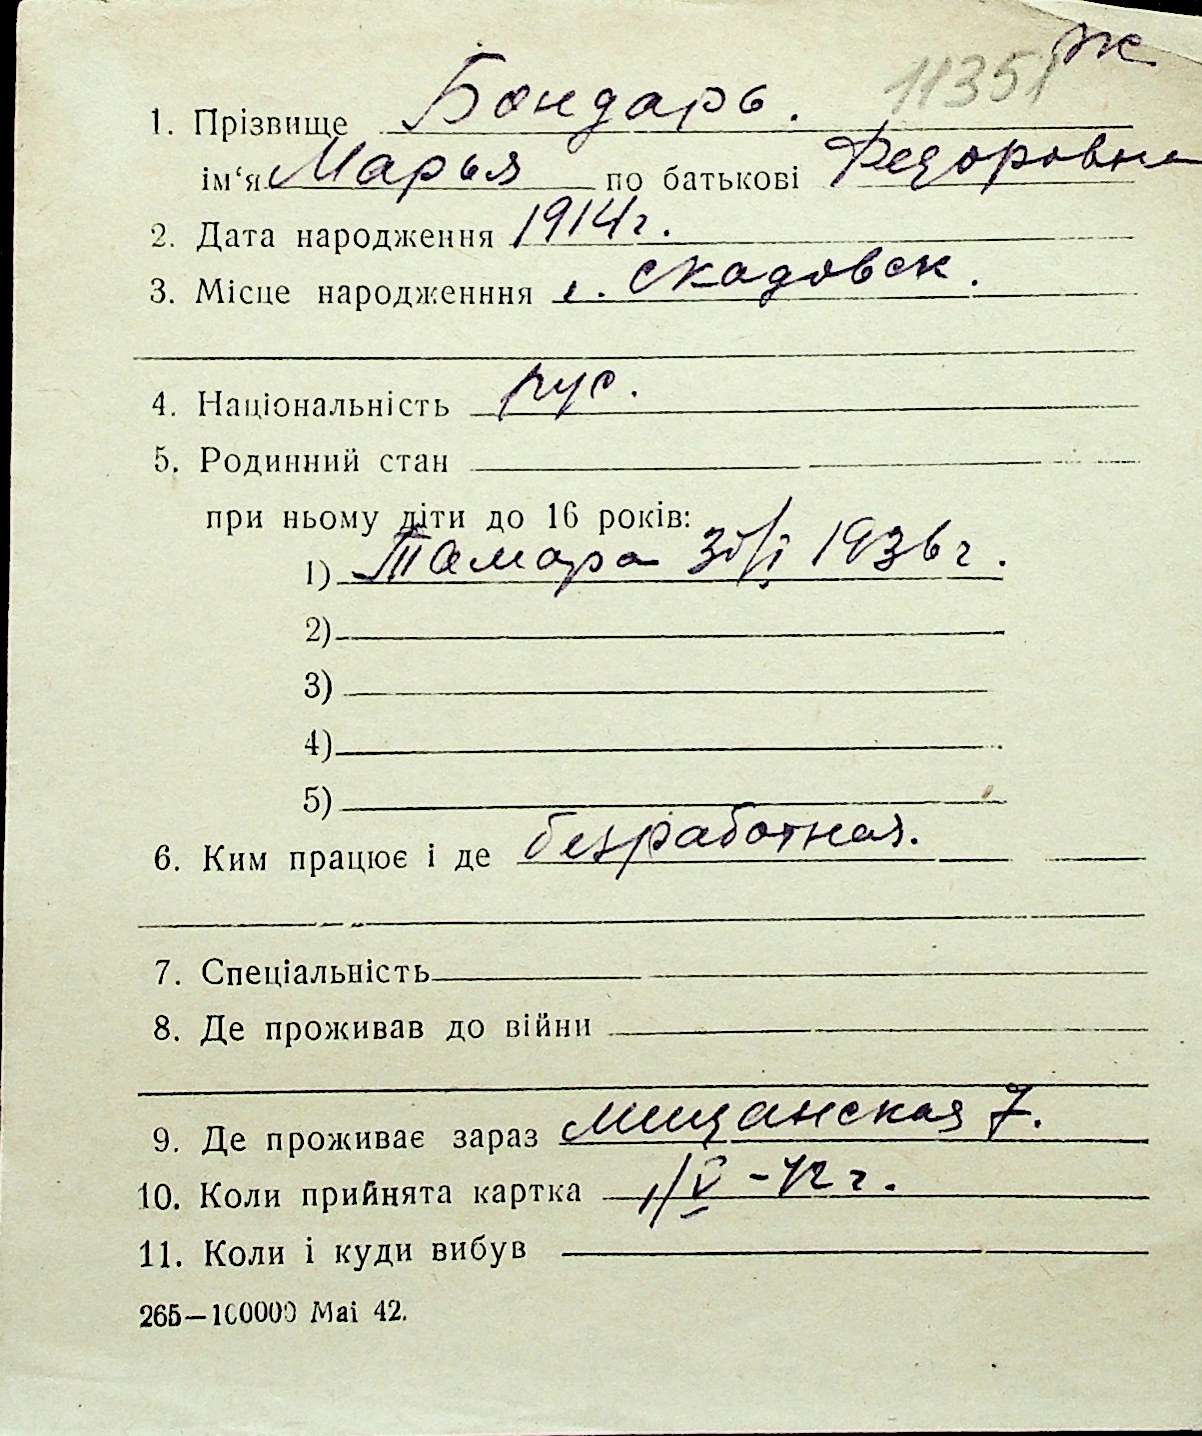 11351 Ж
1. Прізвище Бондарь.
ім‘я Марья по батькові Федоровна
2. Дата народження 1914 г.
3. Місце народженння г. Скадовск.
4. Національність рус.
5. Родинний стан
при ньому діти до 16 років:
1) Тамара 1936 г.
2)
3)
4)
5)
6. Ким працює і де безработная.
7. Спеціальність
8. Де проживав до війни
9. Де проживає зараз Мещанская 7.
10. Коли прийнята картка 1/V - 42 г.
11. Коли і куди вибув
265—100000 Маі 42.